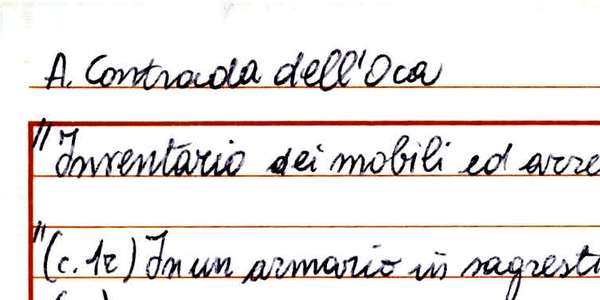 A. Contrada dell'Oca
"Inventario dei mobili ed arre
"(c. 1r) In un armario in sagresti